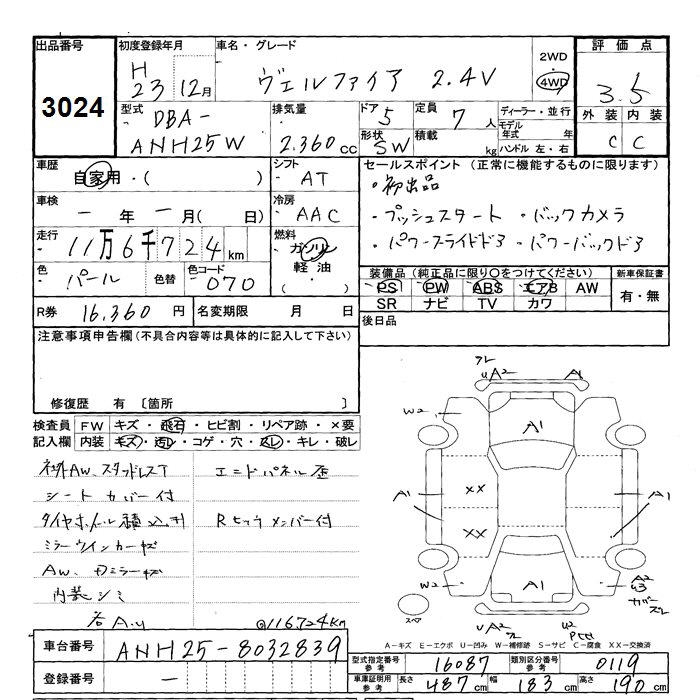 出品番号
3024
初度登録年月
H
23 12月
車名・グレード
ヴェルファイア 2.4V
2WD
・
4WD
評価点
3.5
外装 内装
C C
型式
DBA-
ANH25W
排気量
2.360cc
ドア 5
定員 7人
形状 SW
積載 kg
ディーラー・並行
モデル
年式 年
ハンドル 左・右
車歴
自家用・( )
シフト
AT
車検
一年一月(日)
冷房
AAC
走行
11万6千724km
燃料
ガソリン
軽油
(・)
色
パール
色替
色コード
070
R券 16,360円
名変期限 月 日
セールスポイント (正常に機能するものに限ります)
・初出品
・プッシュスタート ・バックカメラ
・パワースライドドア ・パワーバックドア
装備品 (純正品に限り〇をつけてください)
PS PW ABS エアB AW
SR ナビ TV カワ
新車保証書
有・無
後日品
注意事項申告欄(不具合内容等は具体的に記入して下さい)
修復歴 有 〔箇所 〕
検査員
記入欄
FW キズ・飛石・ヒビ割・リペア跡・×要
内装 キズ・汚レ・コゲ・穴・スレ・キレ・破レ
社外AW、スタッドレスT
シートカバー付
タイヤホイール積込付
ミラーウインカーキズ
AW、ミラーキズ
内装シミ
エンドパネル歪
Rヒッチメンバー付
@116724km
車台番号 ANH25-8032839
登録番号 ー
スレ
uA2 A1
W2
A1
A1
XX
XX
A1
A1
W2
A2
u3
カバー
スレ
スペア
uA2
W2
A-キズ E-エクボ U-凹み W-補修跡 S-サビ C-腐食 XX-交換済
型式指定番号
参考
16087
類別区分番号
参考
0119
車庫証明用
参考
長さ 487cm
幅 183cm
高さ 190cm